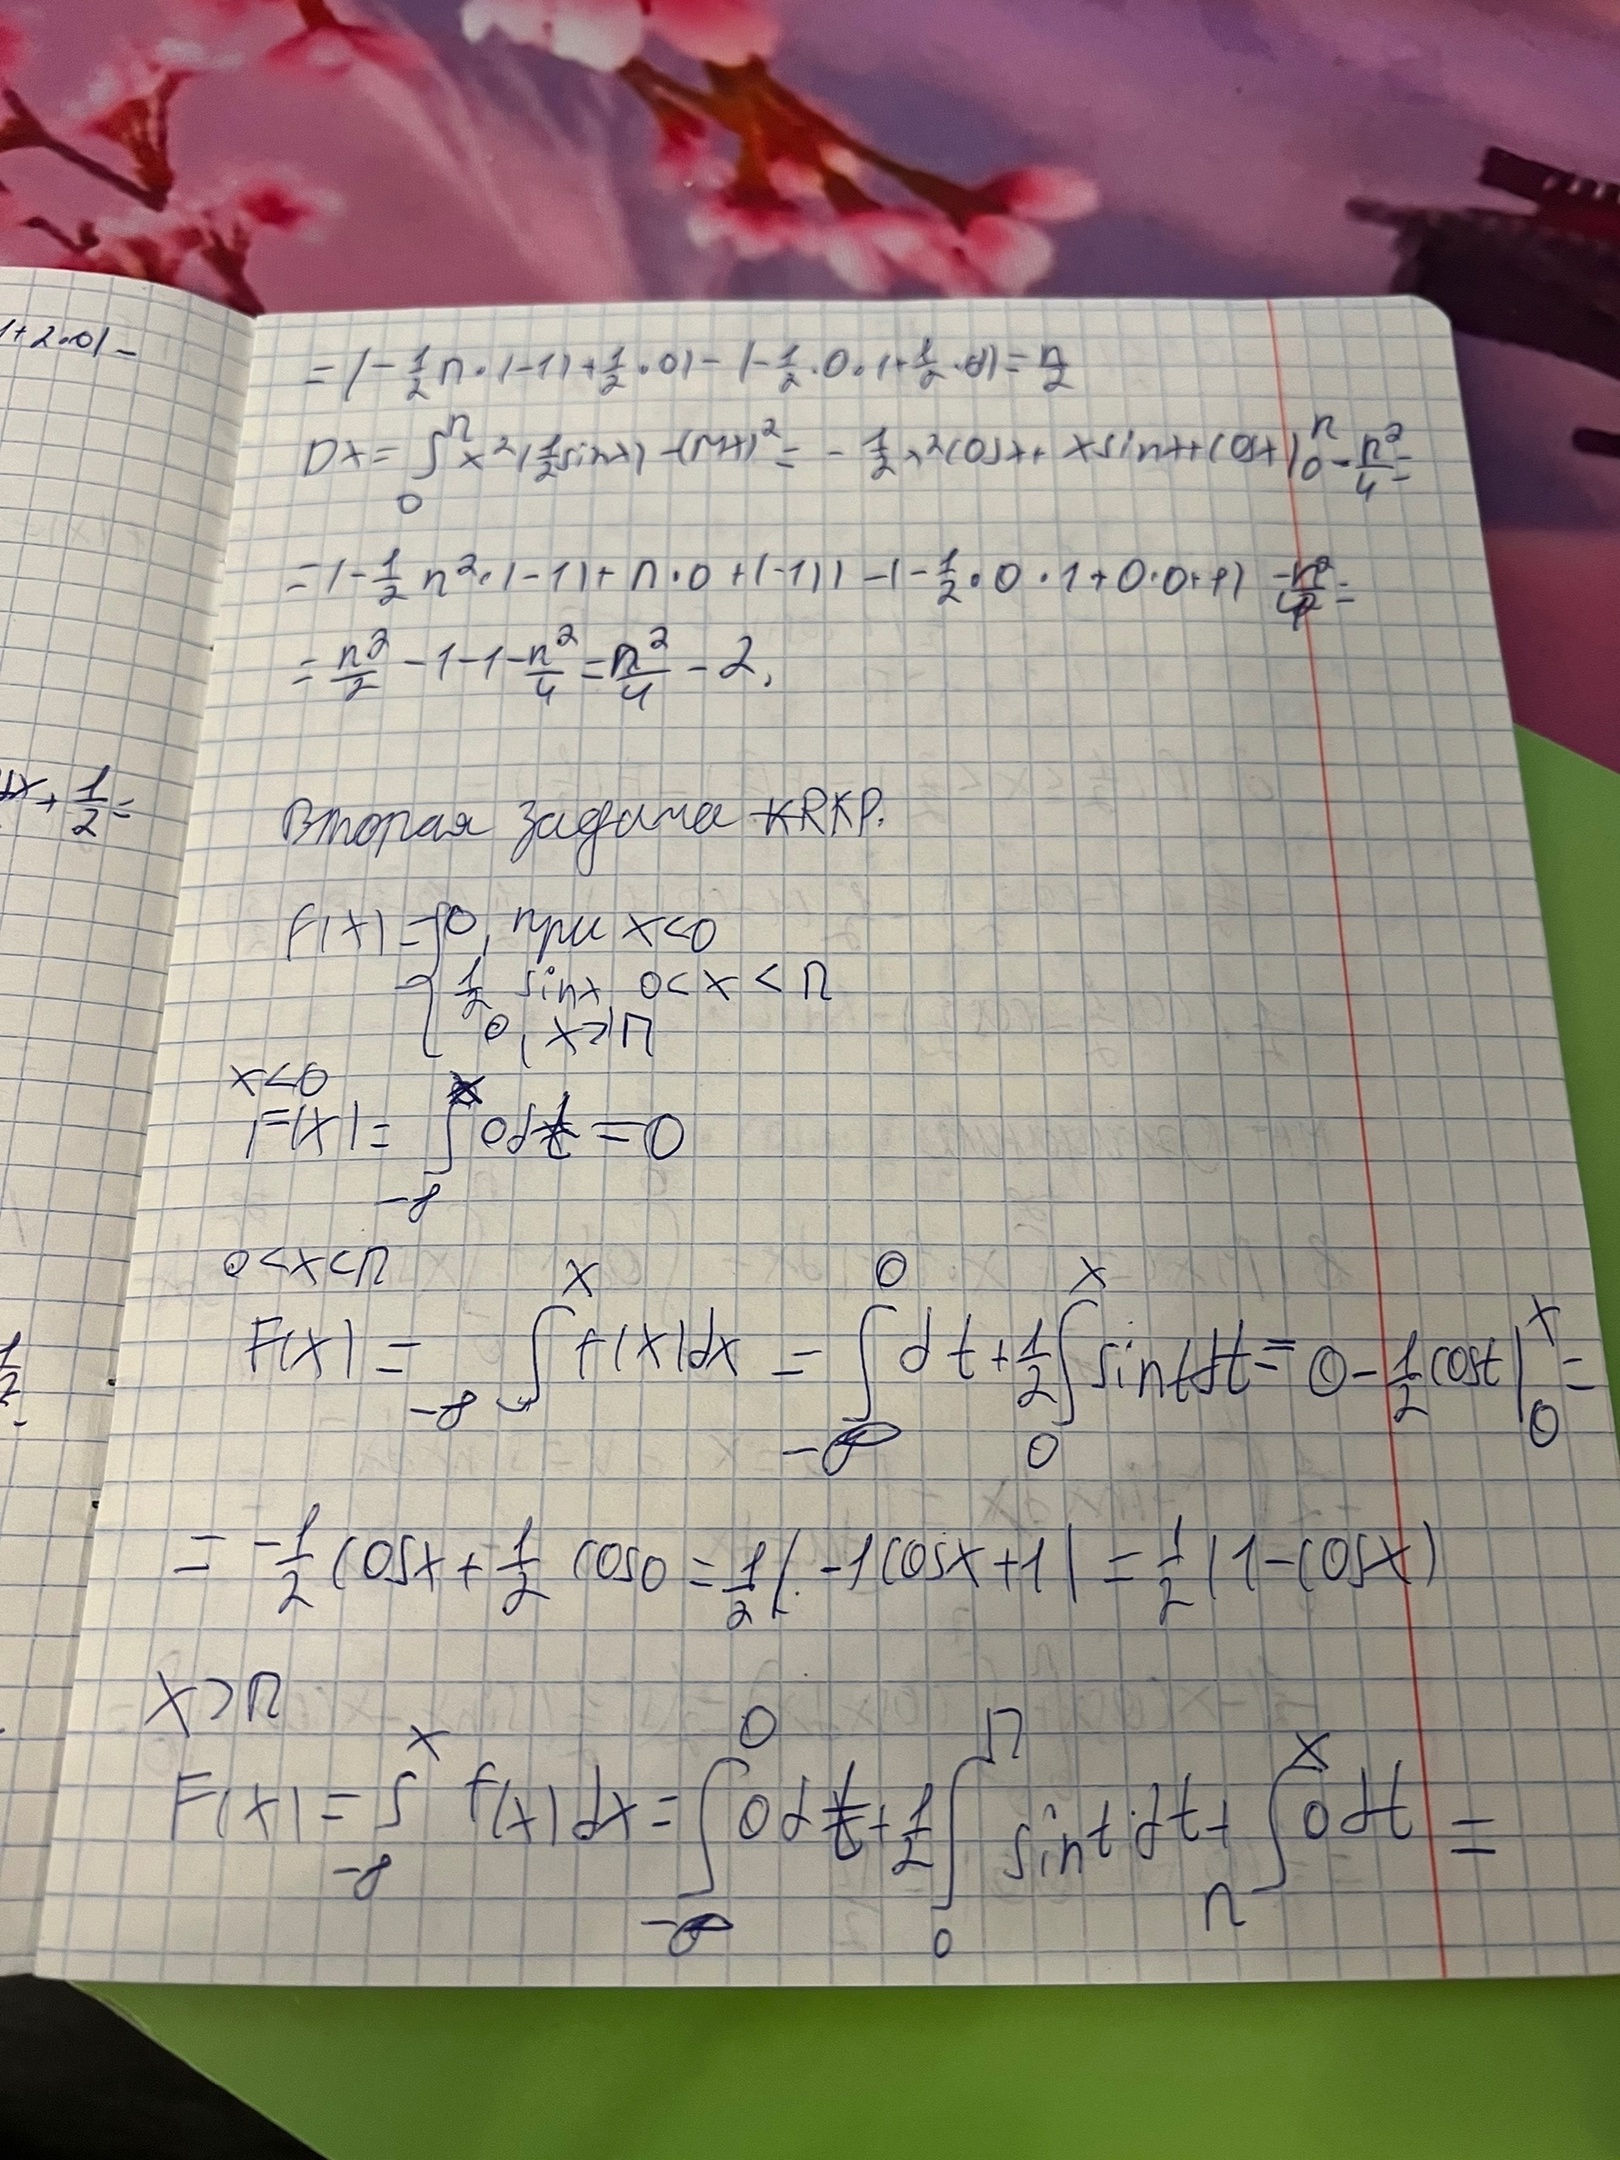 1+2·0)-
=(-1/2 π·(-1)+1/2·0)-(-1/2·0·1+1/2·0)=π/2
DX= ∫₀^π x²(1/2 sinx)-(MX)²= -1/2 x²cosx+ xsinx+cosx|₀^π - π²/4=
=(-1/2 π²·(-1)+π·0+(-1))-(-1/2·0·1+0·0+1) -π²/4=
=π²/2 -1-1-π²/4=π²/4 -2.
dx+1/2=
Вторая задача KRKP.
f(x)={0, при x<0
1/2 sinx, 0<x<π
0, x>π
x<0
F(x)= ∫_{-∞}^x 0dt=0
0<x<π
F(x)= ∫_{-∞}^x f(x)dx = ∫_{-∞}^0 dt+1/2∫_0^x sintdt= 0-1/2 cost|_0^x=
1/2
= -1/2 cosx+1/2 cos0=1/2(-1cosx+1)=1/2(1-cosx)
x>π
F(x)= ∫_{-∞}^x f(x)dx= ∫_{-∞}^0 0dt+1/2∫_0^π sintdt+ ∫_π^x 0dt =